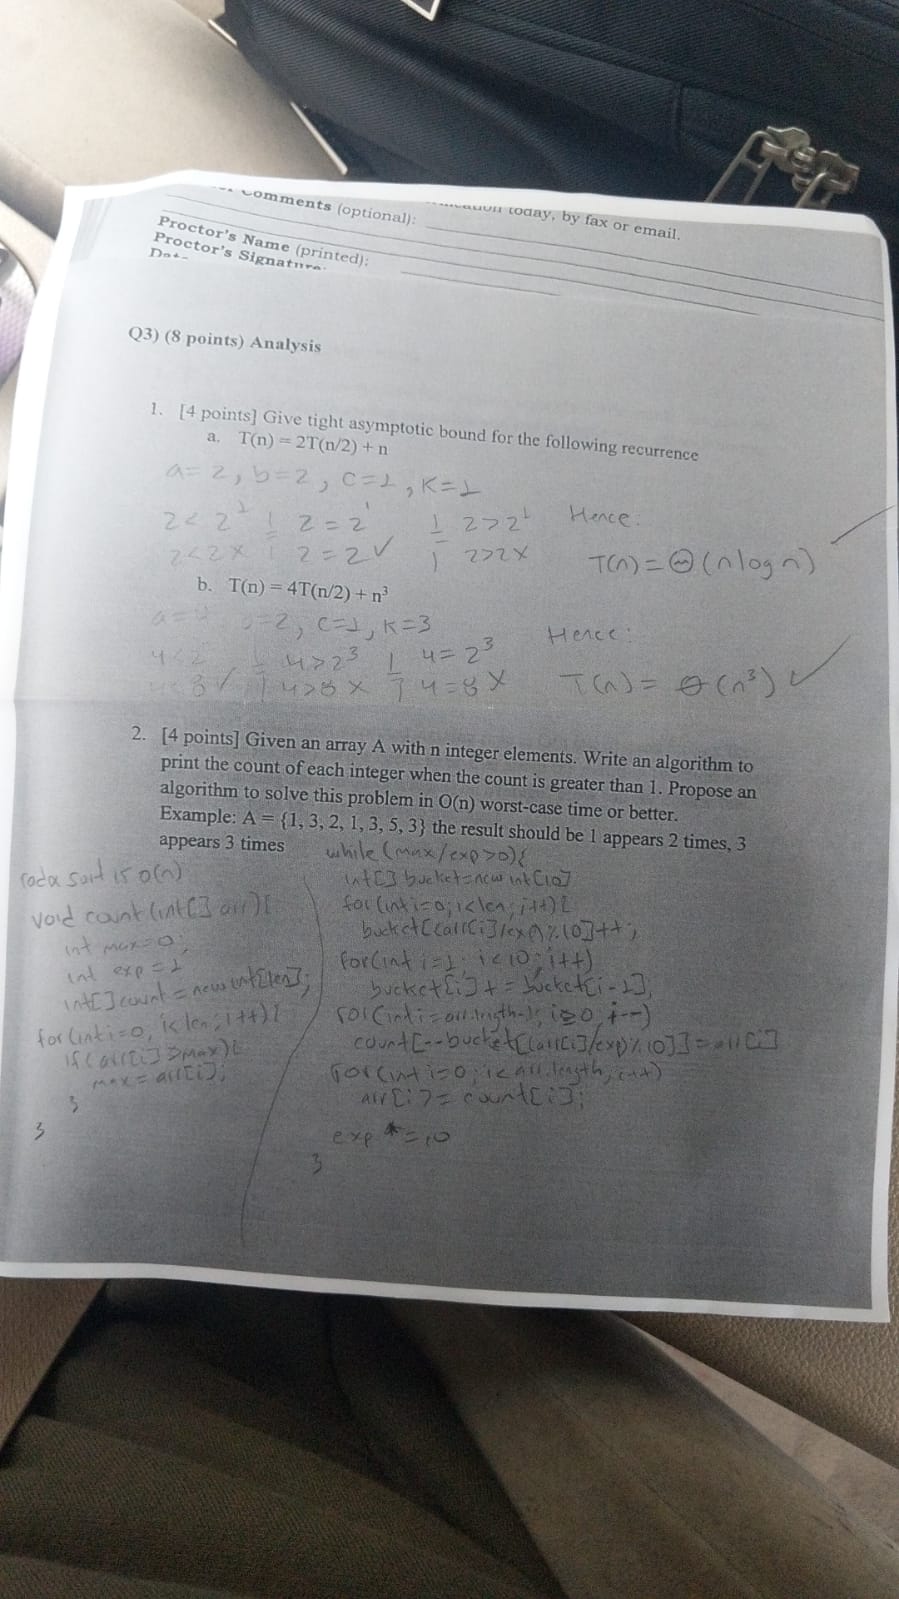 Comments (optional):
today, by fax or email.
Proctor's Name (printed):
Proctor's Signature:
Q3) (8 points) Analysis
1. [4 points] Give tight asymptotic bound for the following recurrence
a. T(n) = 2T(n/2) + n
a=2, b=2, c=1, K=1
2<2¹ 2=2¹ 2>2¹ Hence:
2<2 X 2=2 ✓ 2>2 X T(n)=Θ(nlogn)
b. T(n) = 4T(n/2) + n³
=2, c=1, K=3
4>2³ 4=2³ Hence:
✓ 4>8 X 4=8 X T(n)= θ(n³) ✓
2. [4 points] Given an array A with n integer elements. Write an algorithm to
print the count of each integer when the count is greater than 1. Propose an
algorithm to solve this problem in O(n) worst-case time or better.
Example: A = {1, 3, 2, 1, 3, 5, 3} the result should be 1 appears 2 times, 3
appears 3 times
sort is o(n)
void count (int[] arr){
int max=0;
int exp=1
int[] count = new int[len];
for(int i=0; i<len; i++){
if(arr[i]>max){
max=arr[i];
}
}
while(max/exp>0){
int[] bucket=new int[10]
for(int i=0;i<len;i++){
bucket[(arr[i]/exp)%10]++;
for(int i=1; i<10; i++)
bucket[i]+=bucket[i-1];
for(int i=arr.length-1; i≥0; i--)
count[--bucket[(arr[i]/exp)%10]]=arr[i]
for(int i=0; i<arr.length; i++)
arr[i]=count[i];
exp*=10
}